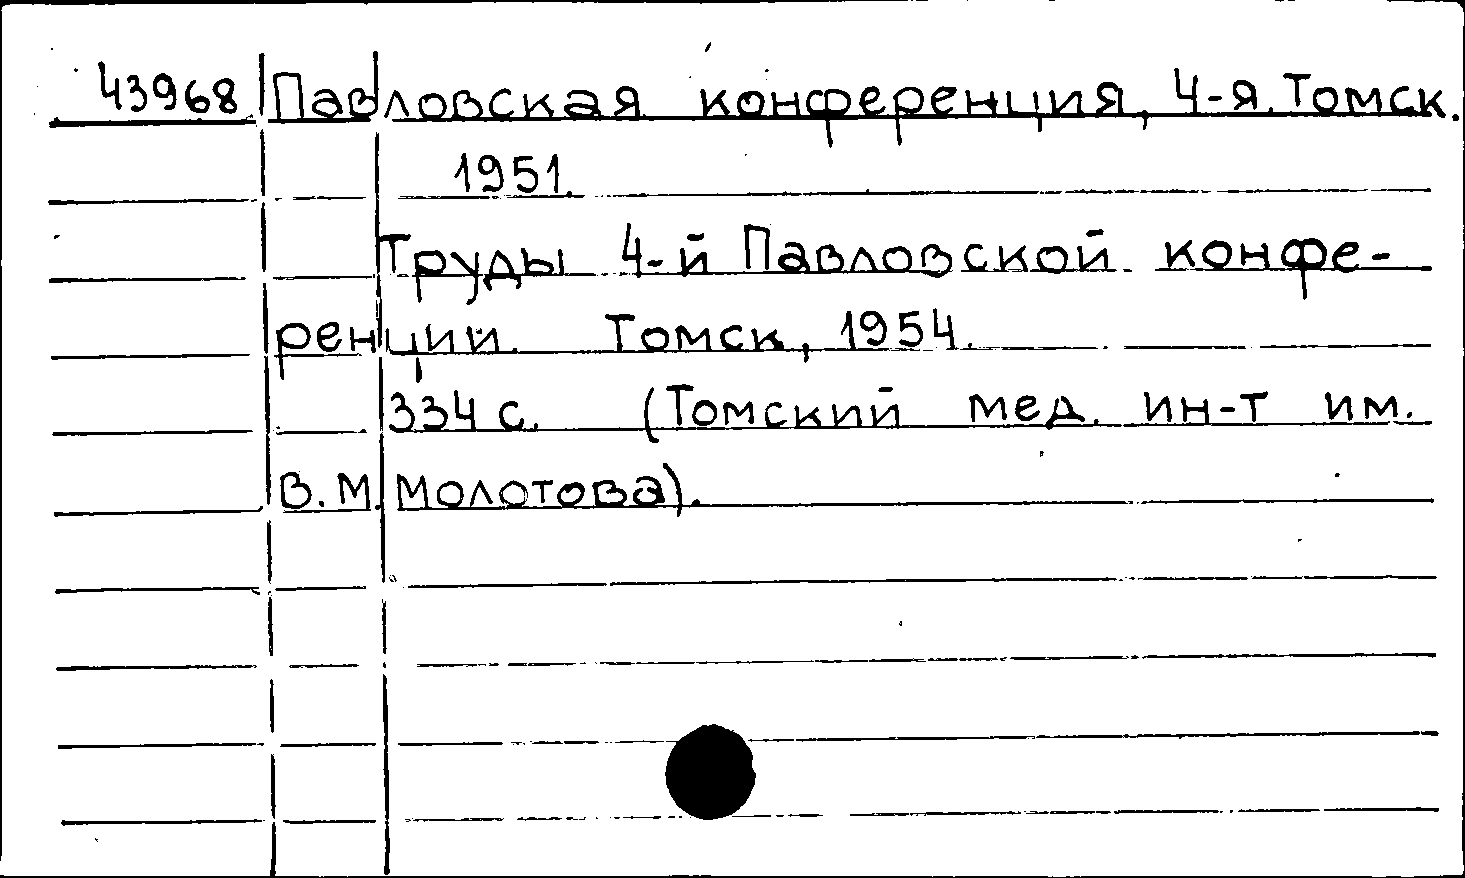 43968 Павловская конференция, 4-я. Томск.
1951.
Труды 4-й Павловской конфе-
ренции. Томск, 1954.
334 с. (Томский мед. ин-т им.
В.М. Молотова).